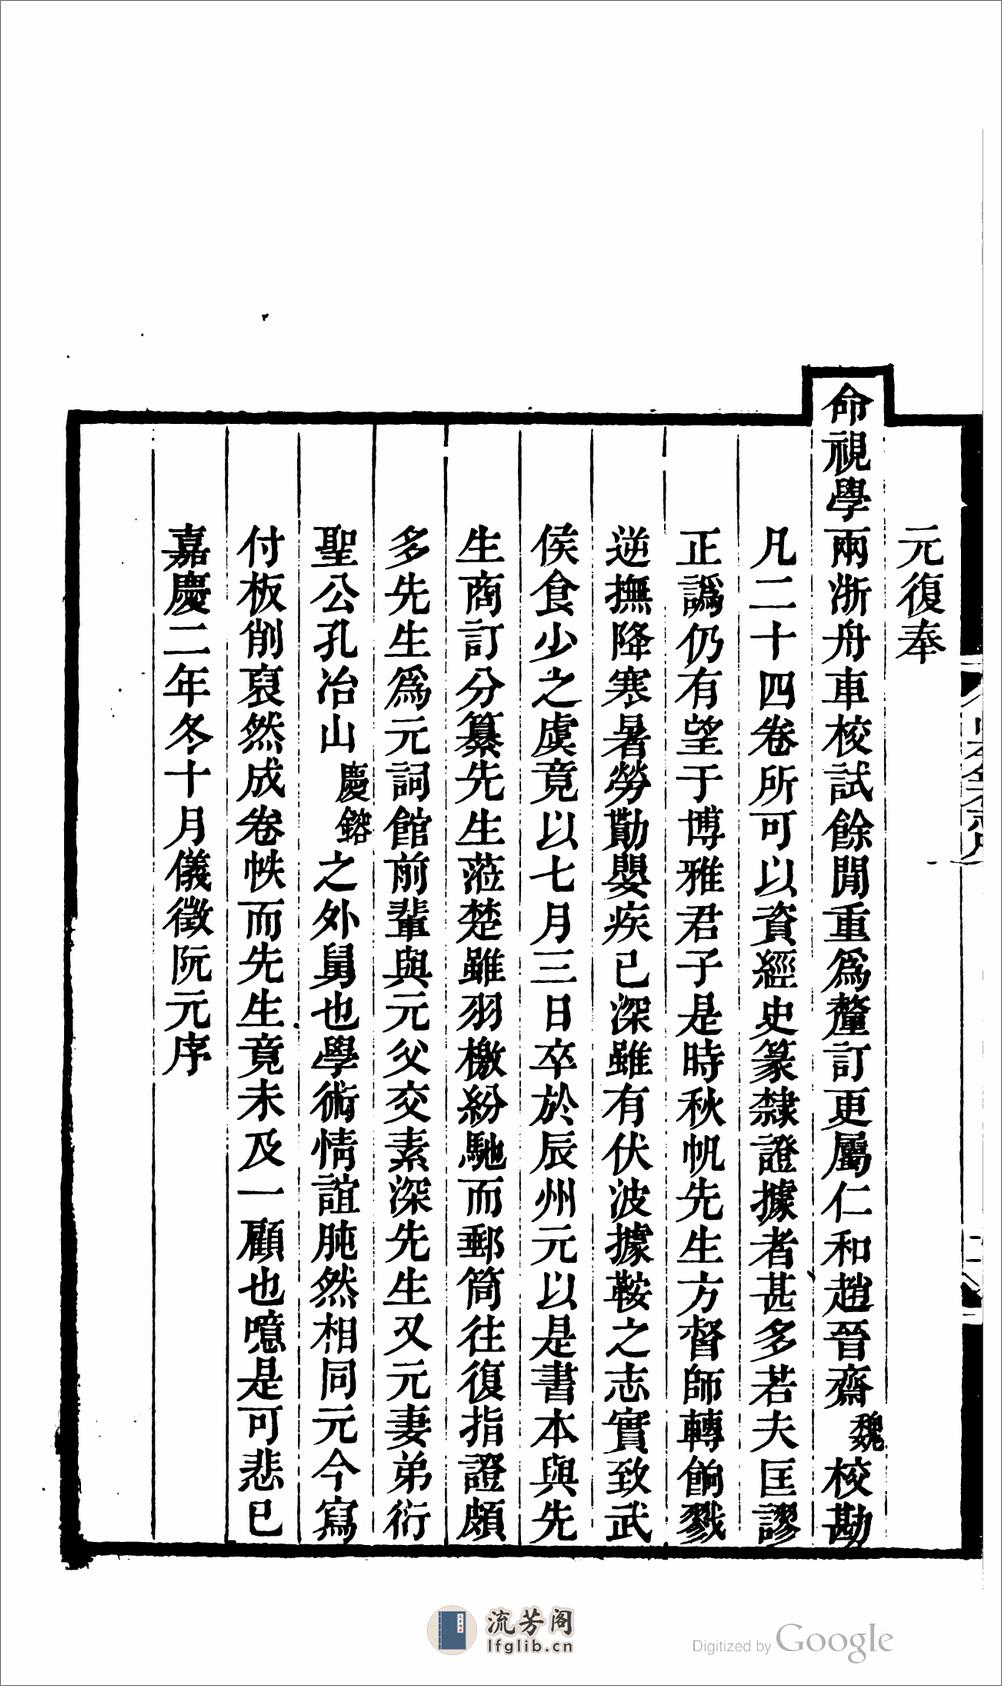 元復奉
命視學兩浙舟車校試餘閒重爲釐訂更屬仁和趙晉齋魏校勘
凡二十四卷所可以資經史篆隸證據者甚多若夫匡謬
正譌仍有望于博雅君子是時秋帆先生方督師轉餉戮
逆撫降寒暑勞勩嬰疾已深雖有伏波據鞍之志實致武
侯食少之虞竟以七月三日卒於辰州元以是書本與先
生商訂分纂先生蒞楚雖羽檄紛馳而郵筒往復指證頗
多先生爲元詞館前輩與元父交素深先生又元妻弟衍
聖公孔冶山慶鎔之外舅也學術情誼肫然相同元今寫
付板削裒然成卷帙而先生竟未及一顧也噫是可悲已
嘉慶二年冬十月儀徵阮元序
流芳阁
lfglib.cn
Digitized by Google